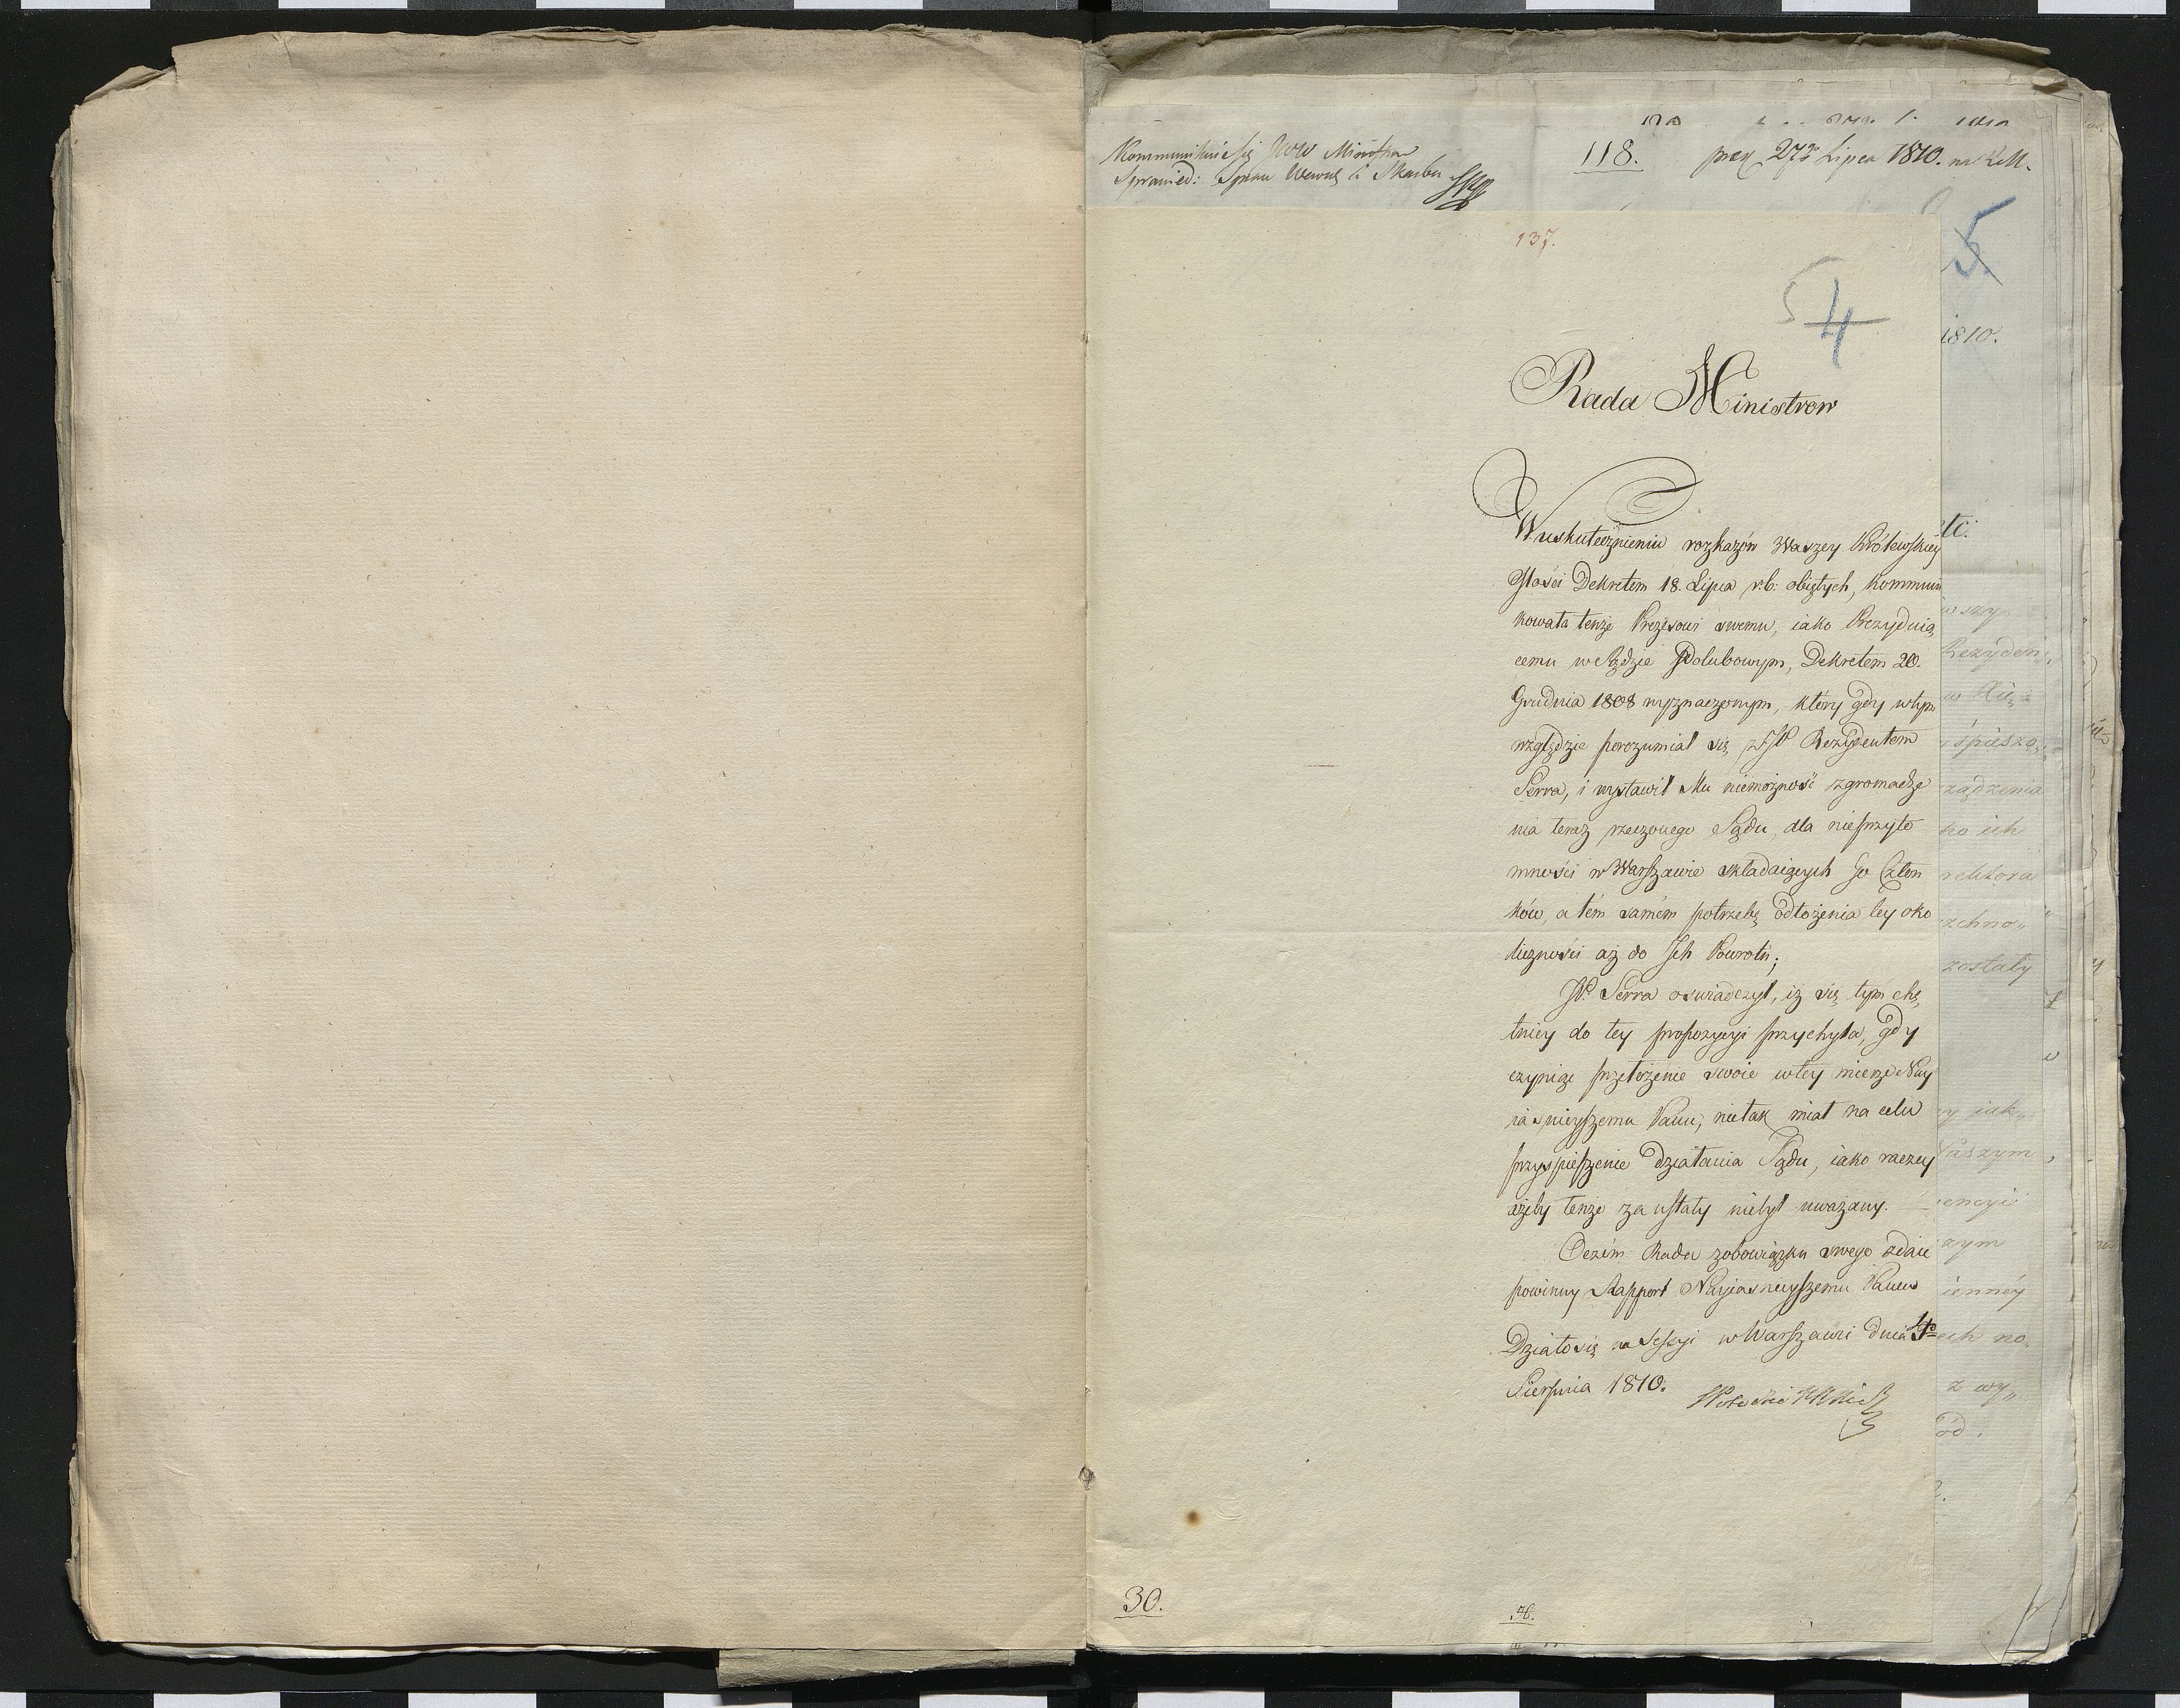 Kommunikuie się JWW Ministrom
Sprawied: Spraw Wewnę i Skarbu
118. prez 27º Lipca 1810. na
137.
5
4
5.
1810.
Rada Ministrow
etc:
W uskutecznieniu rozkazów Waszey Królewskiey
Mości Dekretem 18. Lipca r.b. obiętych, kommuni
kowała tenże Prezesowi swemu, iako Prezyduią
cemu w Sądzie Polubowym, Dekretem 20.
Grudnia 1808 wyznaczonym, który gdy w tym
względzie porozumiał się z JP Rezydentem
Serra, i wystawił Mu niemożność zgromadze
nia teraz rzeczonego Sądu, dla nieprzyto
mności w Warszawie składaiących Go Człon
ków, a tém samém potrzebę odłożenia tey oko
liczności aż do Ich Powrotu;
JP. Serra oswiadczył, iż się tym chę
tniey do tey propozycyi przychyla, gdy
czyniąc przełożenie swoie w tey mierze Nay
iaśnieyszemu Panu, nie tak miał na celu
przyspieszenie działania Sądu, iako raczey
ażeby tenże za ustały niebył uważany.
Oczém Rada z obowiązku swego zdaie
powinny Rapport Nayiasnieyszemu Panu
Działo się na Sessyi w Warszawie dnia
Sierpnia 1810.
wszy
Rezyden
śpiesza
ządzenia
ko ich
rektora
zchno„
zostały
iak„
encyi
zym
ienney
ich no
z wy„
od.
30.